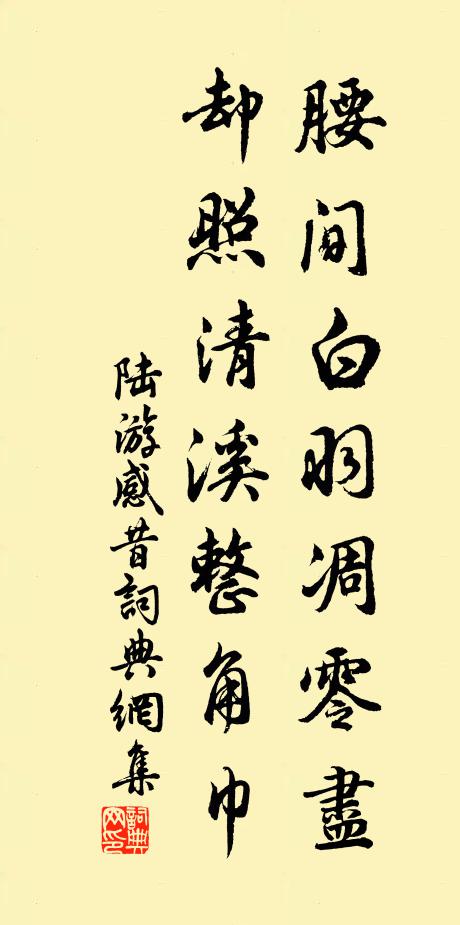 腰间白羽凋零盡
却照清溪整角巾
陆游感昔詞典網集
詞典网印